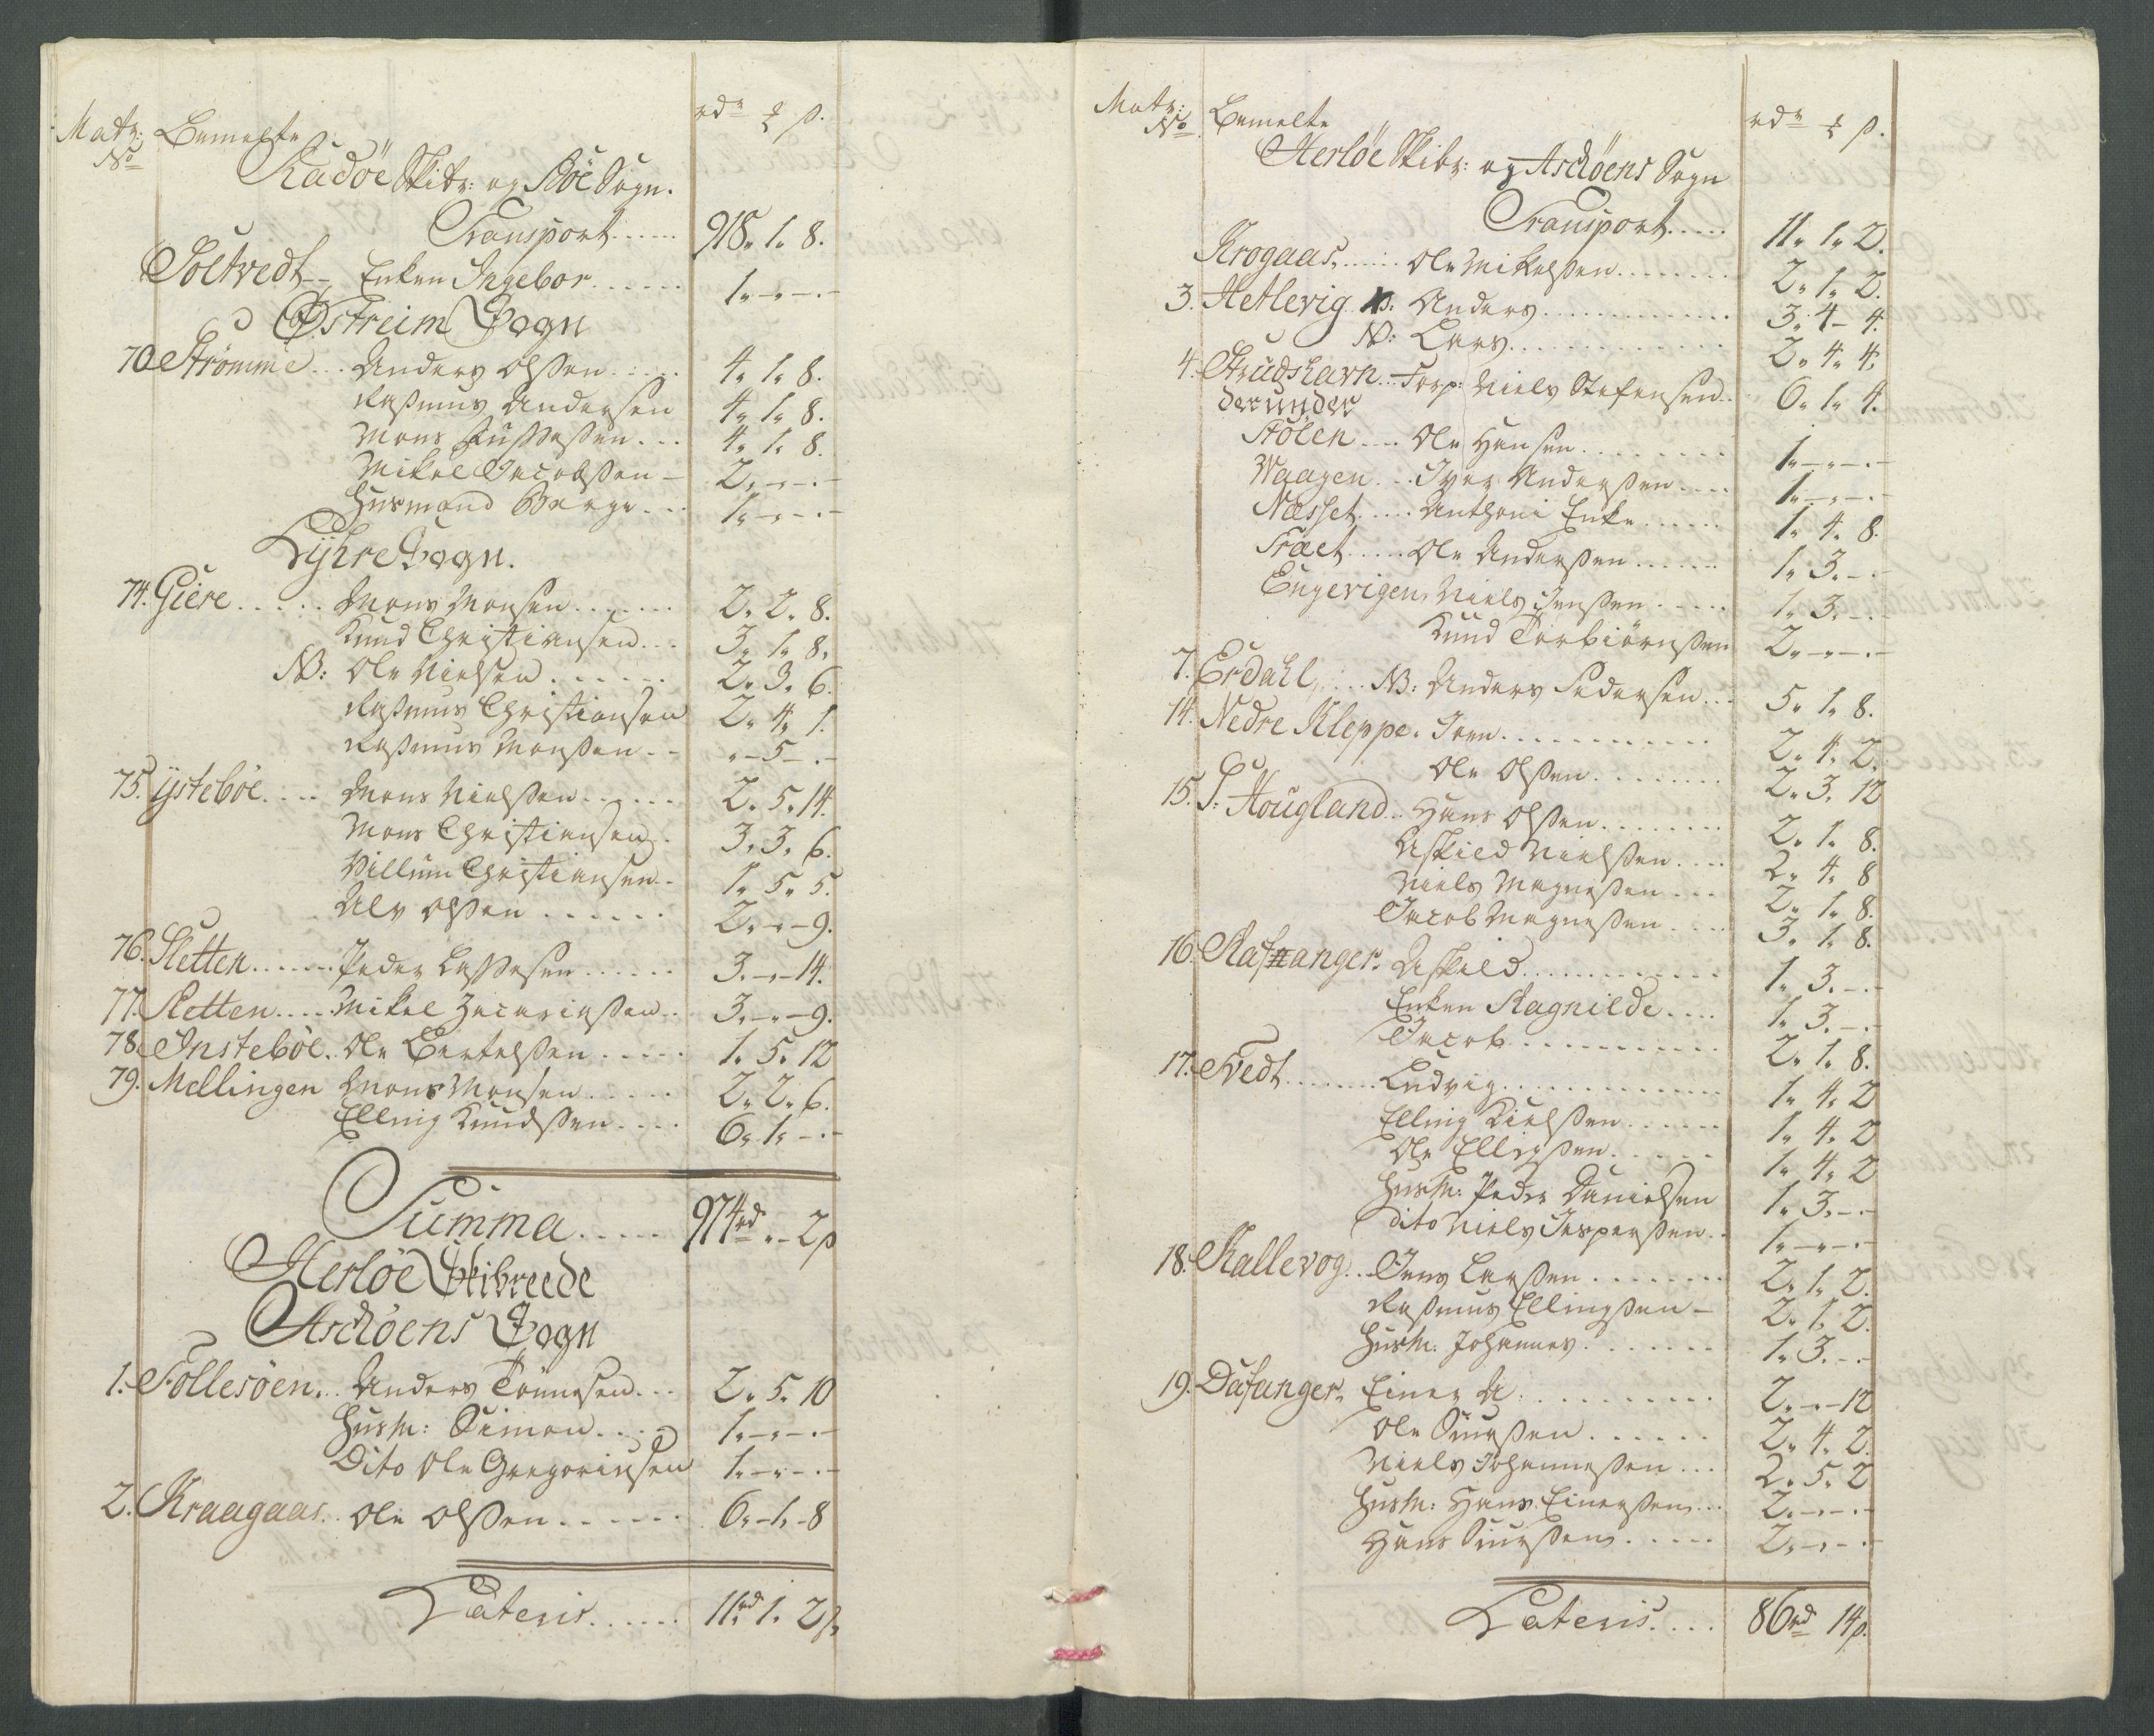 Matr: Bemelte rdr ₰ ß.
No
Radöe Skibr: og Böe Sogn.
Transport ...... 918. 1. 8.
Soltvedt -- Enken Ingebor ...... 1. - . - . -
Østreim Sogn
70. Strömme ... Anders Olsßen ..... 4. 1. 8.
Rasmus Andersen 4. 1. 8.
Mons ... 4. 1. 8.
Mikel Jacobsßen - 2. - . - . -
Husmand Børge ... 1. - . - . -
Lyhre Sogn.
74. Giere ...... Mons Monsen ...... 2. 2. 8.
Knud Christiansen ... 3. 1. 8.
NB: Ole Nielsen ...... 2. 3. 6.
Rasmus Christiansen 2. 4. 1.
Rasmus Monsßen -- " - 5 - . -
75. ÿsteböe .... Mons Nielsßen ...... 2. 5. 14.
Mons Christiansen . 3. 3. 6.
Villum Christiansen - 1. 5. 5.
Ole Olsßen ...... 2. - . - 9.
76. Sletten ...... Peder Lassesen ...... 3. - . - 14.
77. Sletten .... Mikel Zacariasßen .. 3. - . - 9.
78. Insteböe. Ole Bertelsßen ..... 1. 5. 12
79. Mellingen Mons Monsen ..... 2. 2. 6.
Elling Knudsßen .... 6. 1. - . -
Summa ..... 974rd " - 2ß
Herlöe Skibreede
Askiöens Sogn
1. Follesöen ... Anders Tönnesen ... 2. 5. 10
Husm: Simon ..... 1. - . - . -
Dito Ole Gregoriusen 1. - . - . -
2. Kraagaas .. Ole Olsßen ...... 6. - 1. - 8
Lateris ...... 11rd 1. 2ß
Matr: Bemelte rdr ₰ ß.
No
Herlöe Skibr: og Askiöens Sogn
Transport ..... 11. 1. 2.
Krogaas, ...... Ole Mikelsßen ........ 2. 1. 2.
3. Hetlevig Anders ............ 3. 4 - 4.
NB: Lars ............ 2. 4. 4.
4. Strudshavn .. Torp: Niels Stefensen .. 6. 1. 4.
derunder
Stölen .... Ole Hansen ........ 1. - . - . -
Waagen ... Iver Andersßen .... 1. - . - . -
Næsset ..... Anthoni Enke ...... 1. 4. 8.
Træet ..... Ole Andersßen ...... 1. 3. - . -
Engevigen, Niels Jensßen ..... 1. 3. - . -
Knud Torbiörnsßen 2. - . - . -
7. Erdahl, ... NB: Anders Pedersen ... 5. 1. 8.
14. Nedre Kleppe. Iven ........... 2. 4. 2.
Ole Olsßen ........ 2. 3. 12
15. S: Hougland ... Hans Olsßen ........ 2. 1. 8.
Askield Nielsßen .... 2. 4. 8
Niels Magnesßen ... 2. 1. 8.
Jacob Magnesßen .... 3. 1. 8.
16. Rafnanger. Askield ............ 1. 3. - . -
Enken Ragnilde .... 1. 3. - . -
Jacob ........... 2. 1. 8.
17. Tvedt ....... Ludvig ............ 1. 4. 2
Elling Nielsßen ...... 1. 4. 2
Ole Ellingsßen ..... 1. 4. 2
Husm: Peder Danielsen 1. 3. - . -
Dito Niels Jespersßen .. 1. - . - . -
18. Kallevog ... Jens Larsßen ........ 2. 1. 2.
Rasmus Ellingsßen - 2. 1. 2.
Husm. Johannes ....... 1. 3. - . -
19. Dafanger, Einer ......... 2. - . - 12
Ole Siursßen ...... 2. 4. 2.
Niels Johannesßen ... 2. 5. 2
Husm: Hans Einersßen ... 2. - . - . -
Hans Siursßen ..... 2. - . - . -
Lateris .... 86rd 14ß.